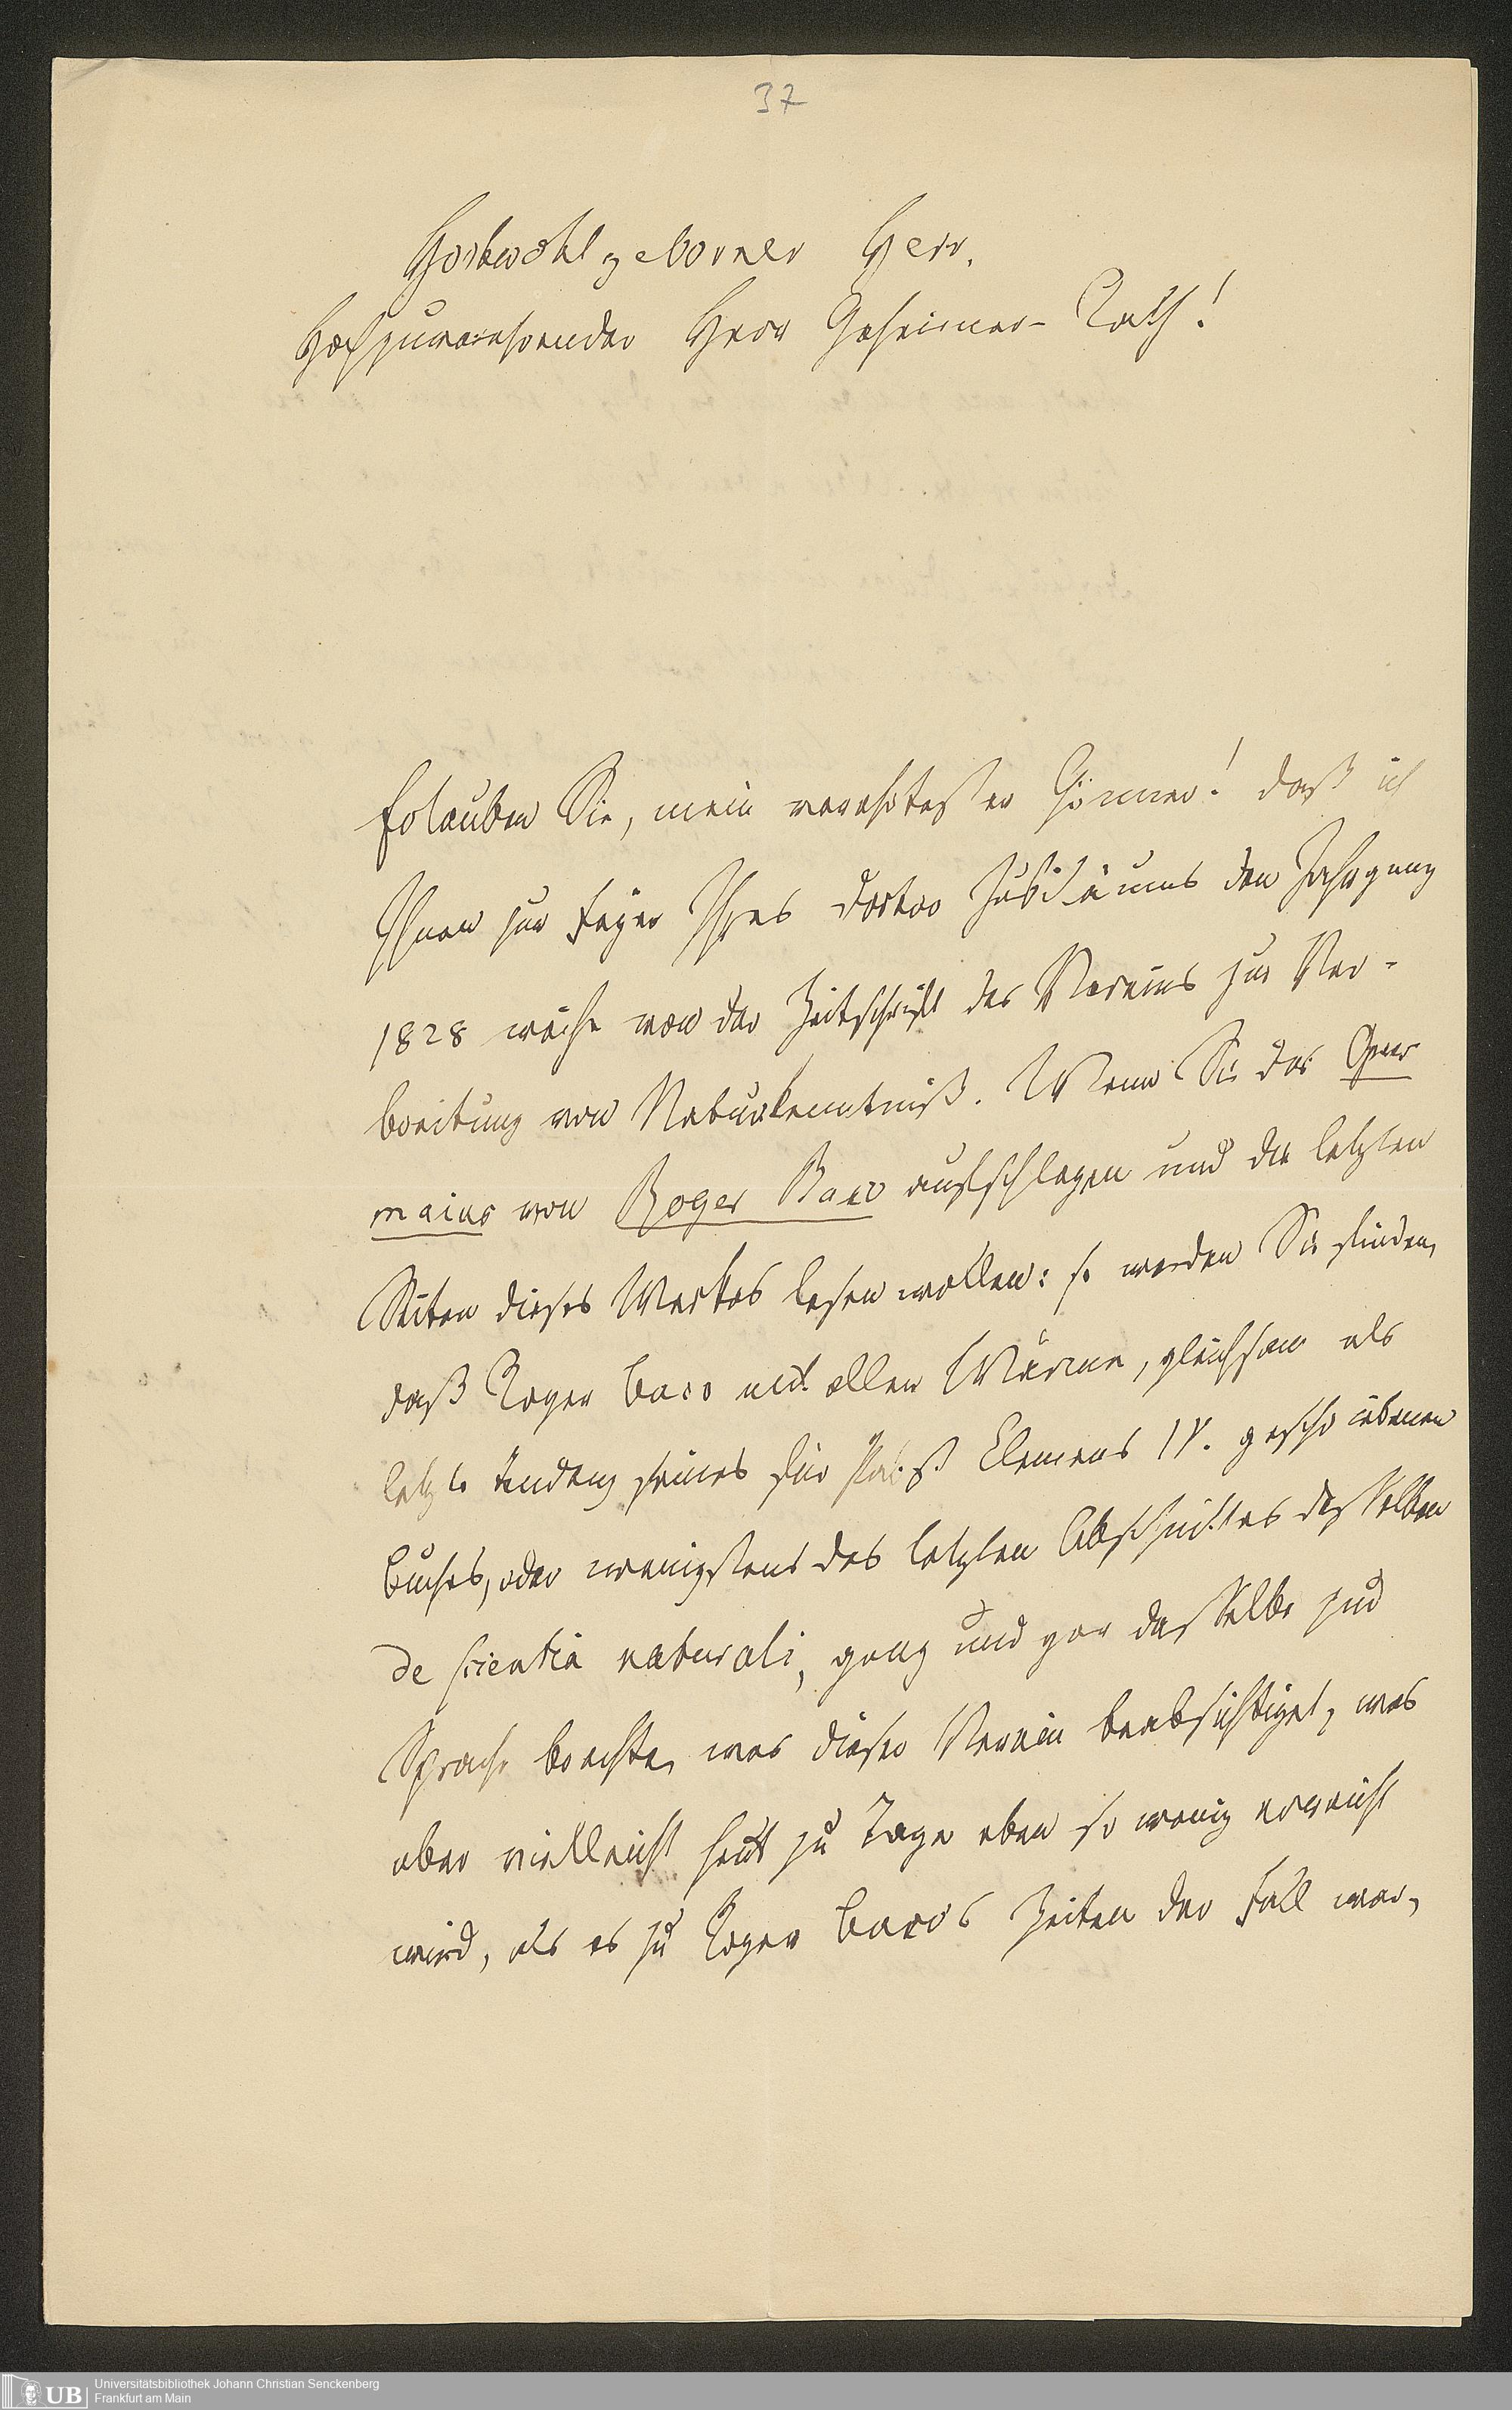 37
Hochwohlgeborner Herr,
Hochzuverehrender Herr Geheimer-Rath!
Erlauben Sie, mein verehrtester Gönner! daß ich
Ihnen zur Feyer Ihres Doctor Jubiläums den Jahrgang
1828 weihe von der Zeitschrift des Vereins zur Ver-
breitung von Naturkenntniß. Wenn Sie das Opus
maius von Roger Baco aufschlagen und die letzten
Seiten dieses Werkes lesen wollen: so werden Sie finden,
daß Roger Baco mit aller Wärme, gleichsam als
letzte Tendenz seines für Pabst Clemens IV. geschriebenen
Buches, oder wenigstens des letzten Abschnittes desselben
de scientia naturali, ganz und gar dasselbe zur
Sprache brachte, was dieser Verein beabsichtiget, was
aber vielleicht heut zu Tage eben so wenig erreicht
wird, als es zu Roger Baco's Zeiten der Fall war,
UB
Universitätsbibliothek Johann Christian Senckenberg
Frankfurt am Main